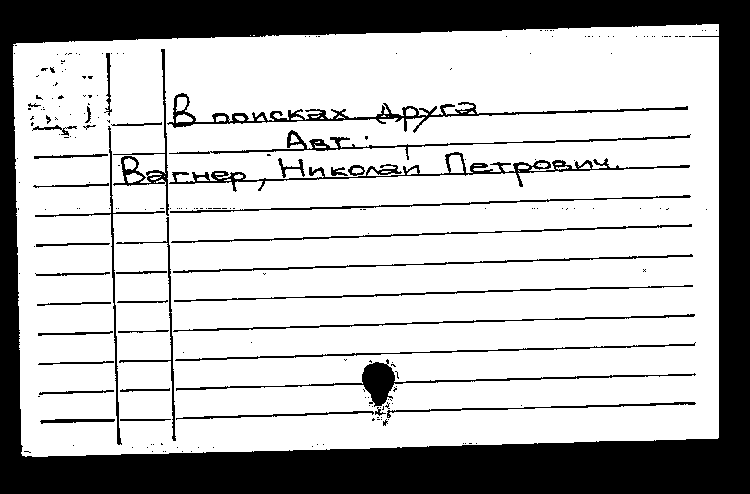 В поисках друга
Авт.:
Вагнер, Николай Петрович.